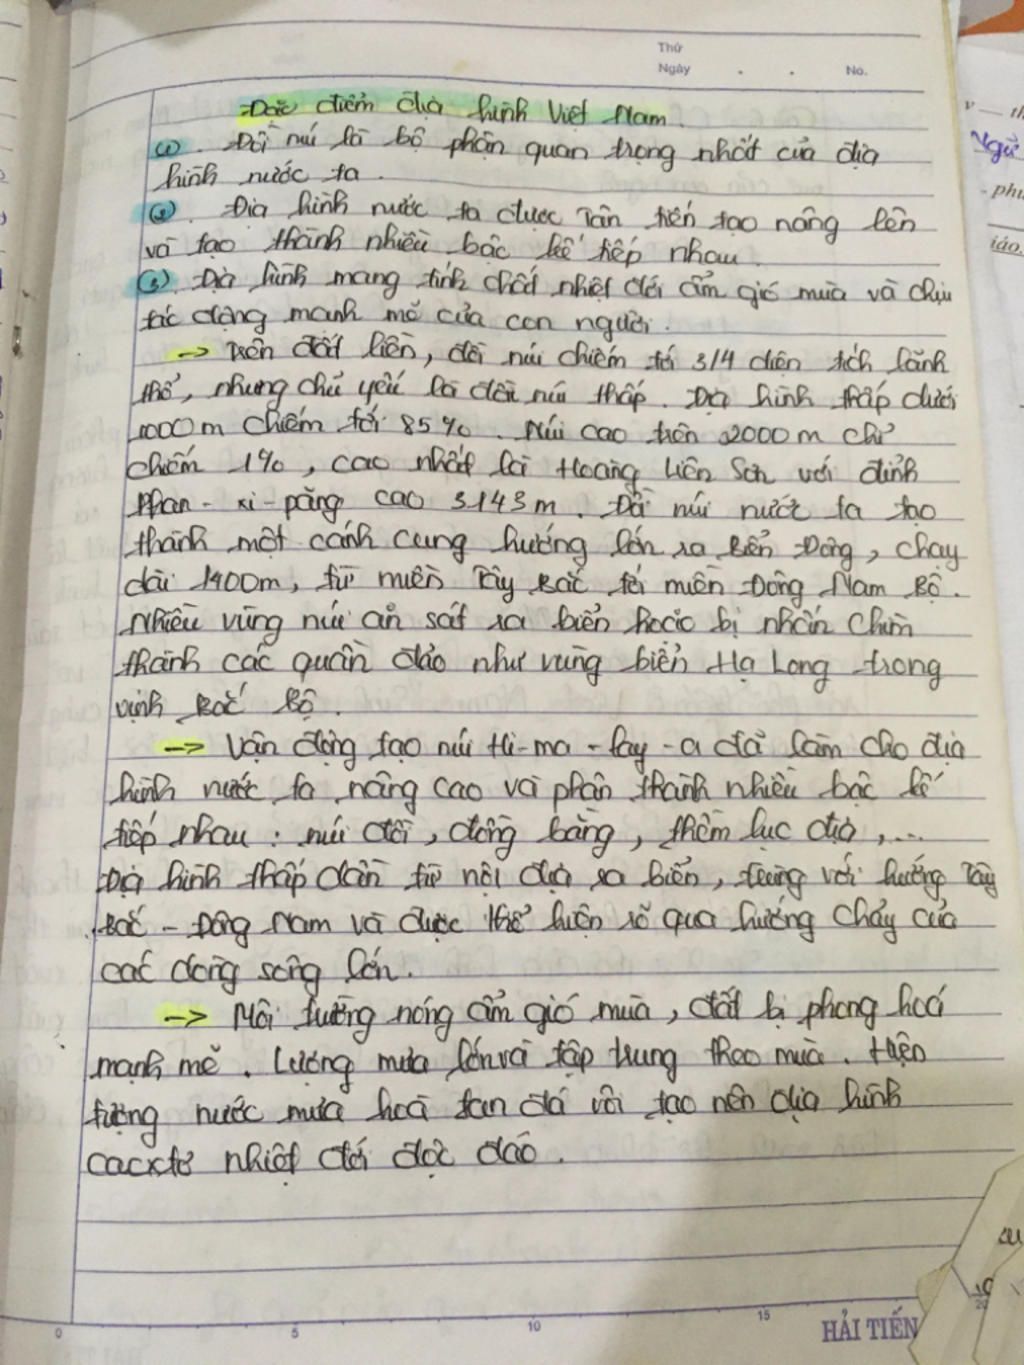 Thứ
Ngày . . No.
Đặc điểm địa hình Việt Nam.
(1). Đồi núi là bộ phận quan trọng nhất của địa
hình nước ta.
(2). Địa hình nước ta được Tân kiến tạo nâng lên
và tạo thành nhiều bậc kế tiếp nhau.
(3). Địa hình mang tính chất nhiệt đới ẩm gió mùa và chịu
tác động mạnh mẽ của con người.
-> Trên đất liền, đồi núi chiếm tới 3/4 diện tích lãnh
thổ, nhưng chủ yếu là đồi núi thấp. Địa hình thấp dưới
1000m chiếm tới 85%. Núi cao trên 2000m chỉ
chiếm 1%, cao nhất là Hoàng Liên Sơn với đỉnh
Phan-xi-păng cao 3143m. Đồi núi nước ta tạo
thành một cánh cung hướng lớn ra Biển Đông, chạy
dài 1400m, từ miền Tây Bắc tới miền Đông Nam Bộ.
Nhiều vùng núi ăn sát ra biển hoặc bị nhấn chìm
thành các quần đảo như vùng biển Hạ Long trong
vịnh Bắc Bộ.
-> Vận động tạo núi Hi-ma-lay-a đã làm cho địa
hình nước ta nâng cao và phân thành nhiều bậc kế
tiếp nhau: núi đồi, đồng bằng, thềm lục địa,...
Địa hình thấp dần từ nội địa ra biển, trùng với hướng Tây
Bắc - Đông Nam và được thể hiện rõ qua hướng chảy của
các dòng sông lớn.
-> Môi trường nóng ẩm gió mùa, đất bị phong hoá
mạnh mẽ. Lượng mưa lớn và tập trung theo mùa. Hiện
tượng nước mưa hoà tan đá vôi tạo nên địa hình
cacxtơ nhiệt đới độc đáo.
0 5 10 15 20
HẢI TIẾN
Ngữ